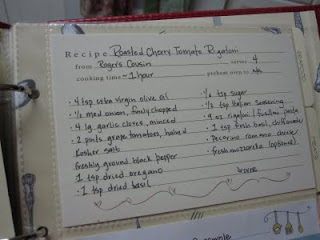 Recipe Roasted Cherry Tomato Rigatoni
from Roger's Cousin serves 4
cooking time ~1 hour preheat oven to
• 4 tsp extra virgin olive oil
• 1/2 med onion, finely chopped
• 4 lg garlic cloves, minced
• 2 pints grape tomatoes, halved
Kosher salt
freshly ground black pepper
• 1 tsp dried oregano
• 1 tsp dried basil
• 1/2 tsp sugar
• 1/2 tsp Italian seasoning
• 9 oz rigatoni / fusilini pasta
• 2 tsp fresh basil, chiffonade
• Pecorino romano cheese
• fresh mozzarella (optional)